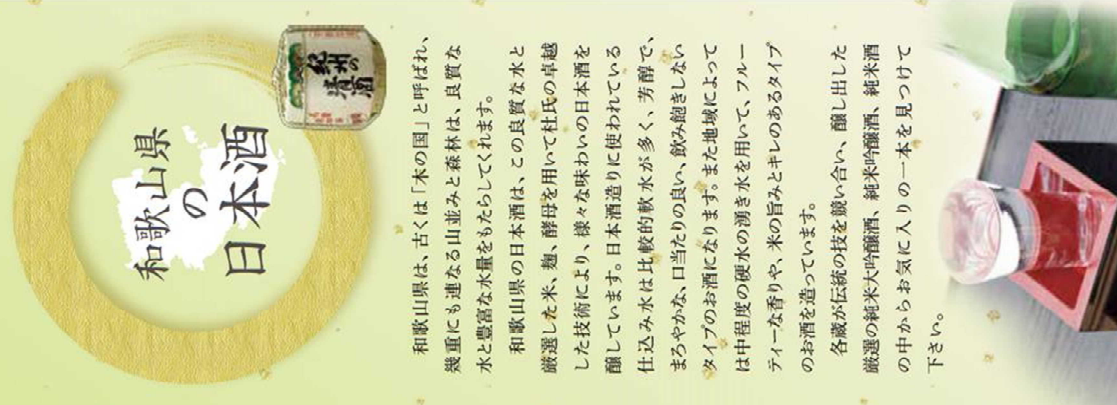 和歌山県
の
日本酒
紀州の
清酒
和歌山県は、古くは「木の国」と呼ばれ、
幾重にも連なる山並みと森林は、良質な
水と豊富な水量をもたらしてくれます。
和歌山県の日本酒は、この良質な水と
厳選した米、麹、酵母を用いて杜氏の卓越
した技術により、様々な味わいの日本酒を
醸しています。日本酒造りに使われている
仕込み水は比較的軟水が多く、芳醇で、
まろやかな、口当たりの良い、飲み飽きしない
タイプのお酒になります。また地域によって
は中程度の硬水の湧き水を用いて、フルー
ティーな香りや、米の旨みとキレのあるタイプ
のお酒を造っています。
各蔵が伝統の技を競い合い、醸し出した
厳選の純米大吟醸酒、純米吟醸酒、純米酒
の中からお気に入りの一本を見つけて
下さい。